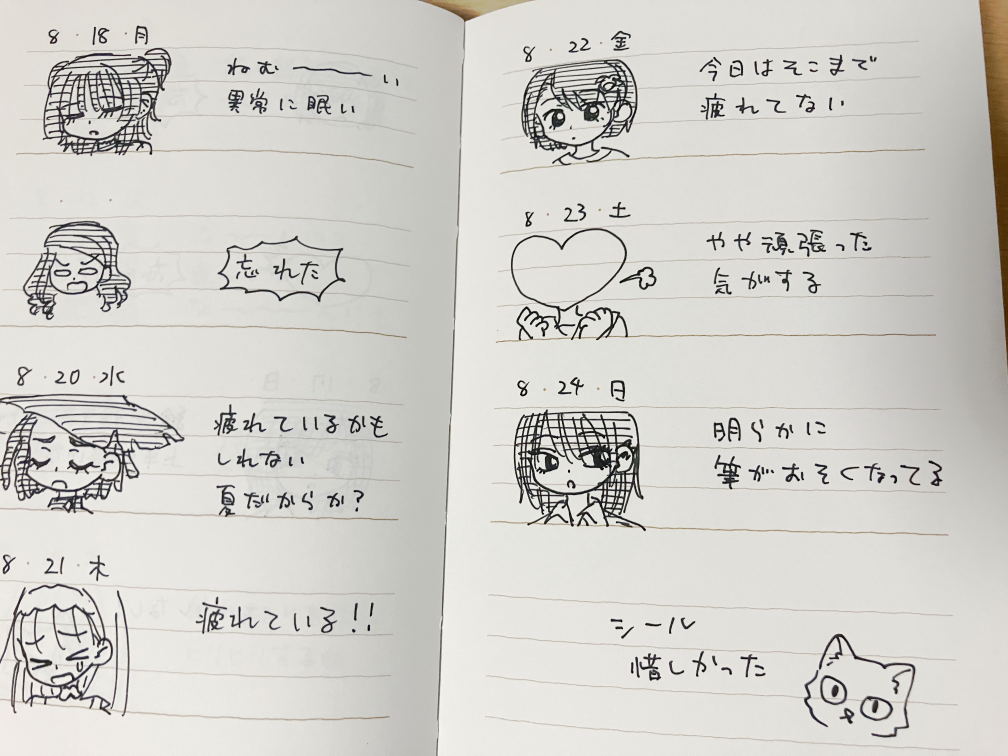 8・18・月
ねむ〜い
異常に眠い
忘れた
8・20・水
疲れているかも
しれない
夏だからか?
8・21・木
疲れている!!
8・22・金
今日はそこまで
疲れてない
8・23・土
やや頑張った
気がする
8・24・日
明らかに
筆がおそくなってる
シール
惜しかった